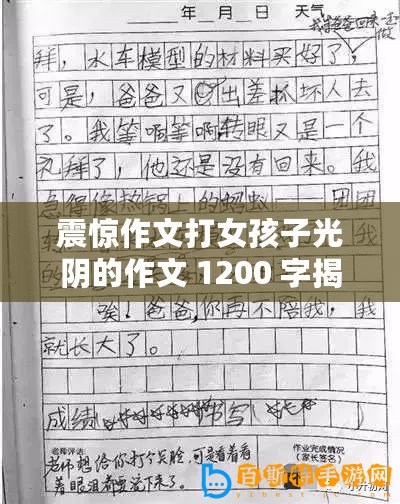 年 月 日 天气
我等爸爸回来一起做
拜，水车模型的材料买好了，
可是，爸爸又出差抓坏人去
了。我等啊等啊转眼又是一个
礼拜了，他还是没有回来。我
急得像热锅上的蚂蚁——团团
震惊作文打女孩子光
阴的作文 1200 字揭
唉！爸爸，你再不陪我，我
就长大了。
成绩 书写
老师评语：
老师想给你打个笑脸，可是看着看
着眼泪都要流下来了。
作业完成情况
（家长签名）
百斯特手游网
www.zybestbd.com